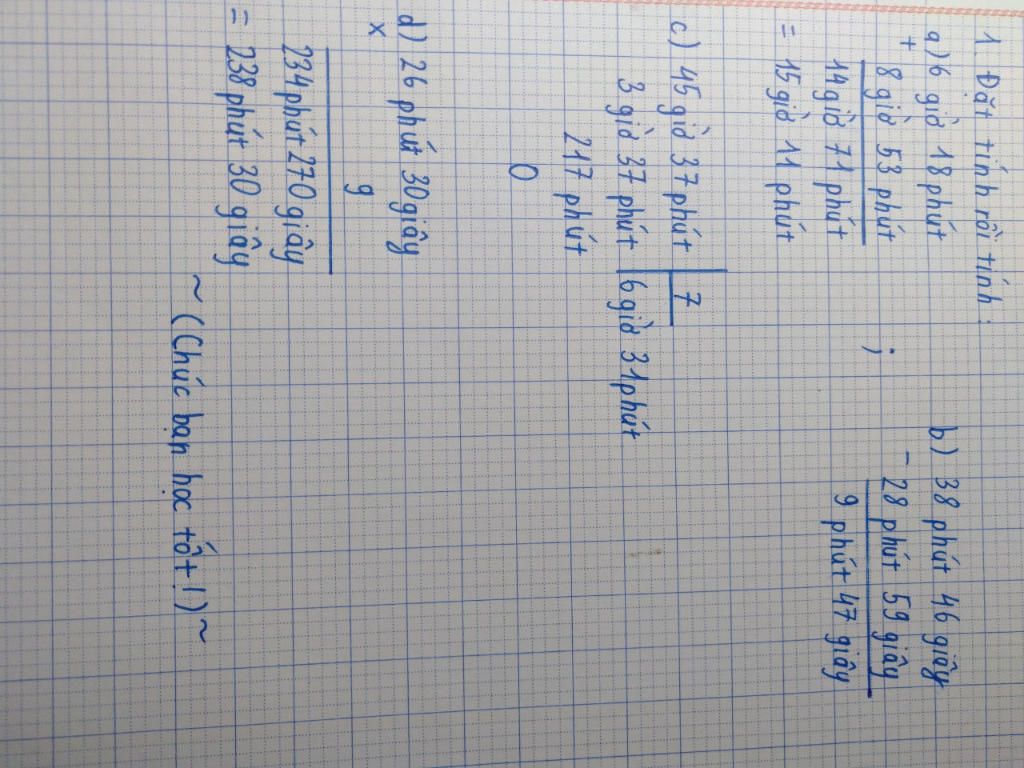 1. Đặt tính rồi tính:
a) 6 giờ 18 phút
+
8 giờ 53 phút
14 giờ 71 phút
= 15 giờ 11 phút
;
b) 38 phút 46 giây
- 28 phút 59 giây
9 phút 47 giây
c) 45 giờ 37 phút 7
3 giờ 37 phút 6 giờ 31 phút
217 phút
0
d) 26 phút 30 giây
x
9
234 phút 270 giây
= 238 phút 30 giây
~ (Chúc bạn học tốt!) ~